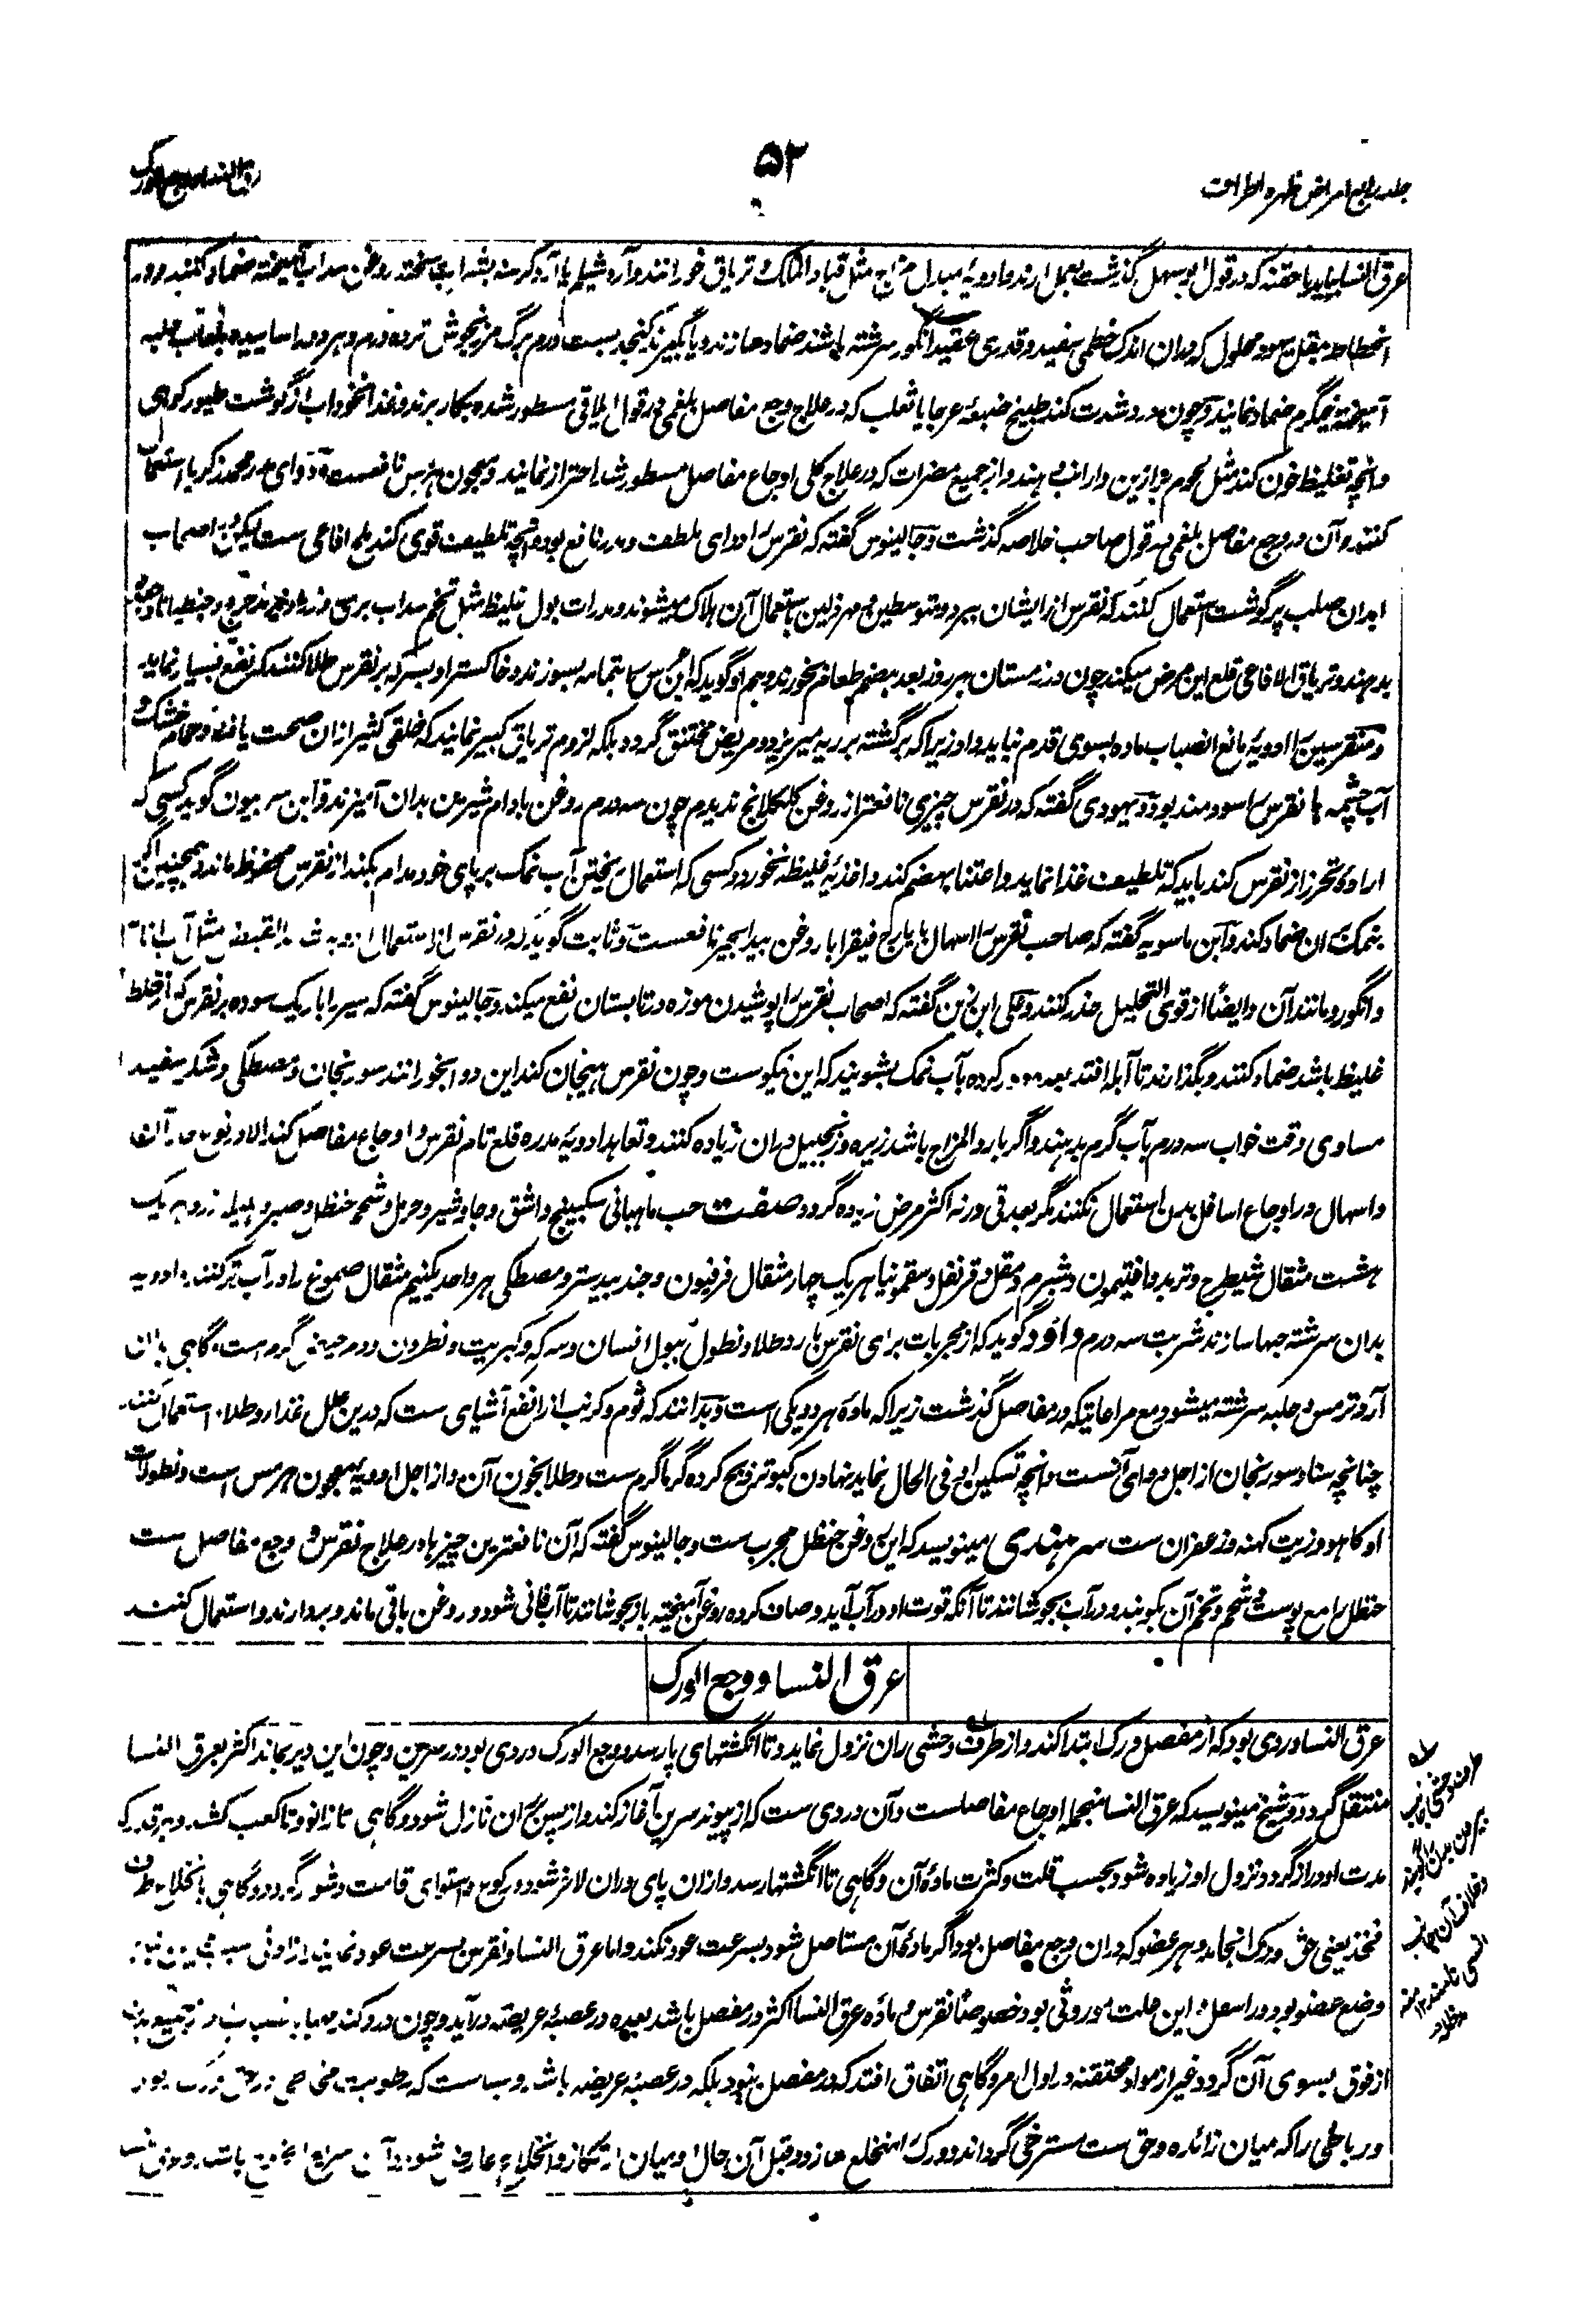 جلد رابع امراض ظهر و اطراف
۵۲
عرق النسا و وجع الورک
عرق النسا بیاید یا حقنه که در قول بوسهل گذشت بعمل ارند و ادویهٔ مبدل مزاج مثل قباد الملک و تریاق خورانند و آرد شیلم یا آرد کرسنه بشراب پخته روغن سداب آمیخته ضماد کنند و در
انحطاط مقل بسود محلول که دران اندک خطمی سفید و قدری عقید انگور سرشته باشند ضماد سازند و یا بگیرند کنجد بست درم برگ مرزنجوش تر ده درم و هر دو را ساییده بلعاب حلبه
آمیخته نیمگرم ضماد نمایند و چون درد شدت کند طبیخ ضبعهٔ عرجا یا ثعلب که در علاج وجع مفاصل بلغمی در قول ایلاقی مسطور شده بکار برند و غذا نخوداب از گوشت طیور کوهی
و انچه تغلیظ خون کند مثل لحوم بز ازین دارانب ندهند و از جمیع مضرات که در علاج کلی اوجاع مفاصل مسطور شد احتراز نمایند و معجون هرمس نافعست و دوای محمد زکریا استعمال
کنند و آن در وجع مفاصل بلغمی در قول صاحب خلاصه گذشت و جالینوس گفته که نقرس را دوای ملطف و مدر نافع بود و انچه تلطیف قوی کند ملح افاعی ست لیکن در اصحاب
ابدان صلب پرگوشت استعمال کنند که نقرس از ایشان ببرد و متوسطین و مهزولین باستعمال آن هلاک میشوند و مدرات بول غلیظ مثل تخم سداب بری و زراوند مدحرج و جنطیانا
بدهند و تریاق الافاعی قلع این مرض میکند چون در زمستان هر روز بعد هضم طعام بخورند و هم او گوید که ابن عرس را بتمامه بسوزند و خاکستر او بسرکه بر نقرس طلا کنند که نفع بسیار نماید
و منقرسین را ادویهٔ مانع انصباب ماده بسوی قدم نباید داد زیراکه برگشته بر ریه میریزد و مریض مختنق گردد بلکه لزوم تریاق کبیر نمایند که خلقی کثیر ازان صحت یافته و حمام خشک و
آب چشمه ها نقرس را سودمند بود و یهودی گفته که در نقرس چیزی نافعتر از روغن کلکلانج ندیدم چون سه درم روغن بادام شیرین بدان آمیزند و ابن سرابیون گوید کسی که
ارادهٔ تحرز از نقرس کند باید که تلطیف غذا نماید و اعتنا بهضم کند و اغذیهٔ غلیظه نخورد و کسی که استعمال ریختن آب نمک بر پای خود مدام بکند از نقرس محفوظ ماند و همچنین اگر
بنمک ان ضماد کند و ابن ماسویه گفته که صاحب نقرس را اسهال بایارج فیقرا با روغن بیدانجیر نافعست و ثابت گوید که در نقرس از استعمال ادویه شدید القبض مثل آب انار
و انگور و مانند آن و ایضاً از قوی التحلیل حذر کنند و علی ابن زین گفته که اصحاب نقرس را پوشیدن موزه در تابستان نفع میکند و جالینوس گفته که سیر را باریک سوده بر نقرس که از خلط
غلیظ باشد ضماد کنند و بگذارند تا آبله افتد بعد دور کرده بآب نمک بشویند که این نیکوست و چون نقرس هیجان کند این دوا بخورانند سورنجان و مصطکی و شکر سفید
مساوی وقت خواب سه درم بآب گرم بدهند و اگر بارد المزاج باشد زیره و زنجبیل دران زیاده کنند و تعاهد ادویه مدره قلع تام نقرس و اوجاع مفاصل کند
و اسهال در اوجاع اسافل بدن استعمال نکنند مگر بعد قی ورنه اکثر مرض زیاده گردد صفت حب ماهیانی سکبینج و اشق و جاوشیر و حرمل و شحم حنظل و صبر و هلیله زرد هر یک
هشت مثقال شیطرج و تربد و افتیمون و شبرم و مقل و قرنفل و سقمونیا هر یک چهار مثقال فرفیون و جندبیدستر و مصطکی هر واحد یکنیم مثقال صموغ را در آب تر کنند و ادویه
بدان سرشته حبها سازند شربت سه درم داود گوید که از مجربات برای نقرس بارد طلا و نطول ببول انسان و سرکه و کبریت و نطرون و دم حیض گرم است و گاهی بدان
آرد ترمس و حلبه سرشته میشود مع مراعاتیکه در مفاصل گذشت زیراکه مادهٔ هر دو یکی است و بدانند که ثوم و کرنب از انفع اشیای ست که درین علل غذا و طلا استعمال کنند
چنانچه سنا و سورنجان از اجل دوای آنست و انچه تسکین او فی الحال نماید نهادن کبوتر ذبح کرده گرماگرم ست و طلا بخون آن و از اجل ادویه معجون هرمس است و نطولات
او کاهو و زیت کهنه و زعفران ست سرهندی مینویسد که این روغن حنظل مجرب ست و جالینوس گفته که آن نافعترین چیزها در علاج نقرس و وجع مفاصل ست
حنظل را مع پوست و شحم و تخم آن بکوبند و در آب بجوشانند تا آنکه قوت او در آب آید و صاف کرده روغن آمیخته باز بجوشانند تا آب فانی شود و روغن باقی ماند و بردارند و استعمال کنند
عرق النسا و وجع الورک
عرق النسا دردی بود که از مفصل ورک ابتدا کند و از طرف وحشی ران نزول نماید و تا انگشتهای پا رسد و وجع الورک دردی بود در سرین و چون این دیر بماند اکثر بعرق النسا
منتقل گردد و شیخ مینویسد که عرق النسا منجمله اوجاع مفاصلست و آن دردی ست که از پیوند سرین آغاز کند و از پس ران نازل شود و گاهی تا زانو و تا کعب کشد و هر قدر که
مدت او دراز گردد نزول او زیاده شود بحسب قلت و کثرت مادهٔ آن و گاهی تا انگشتها رسد و ازان پای و ران لاغر شود و رکوع و استوای قامت دشوار گردد و گاهی بانخلاع طرف
فخذ یعنی حق ورک انجامد و هر عضو که دران وجع مفاصل بود اگر مادهٔ آن مستاصل شود بسرعت عود نکند و اما عرق النسا و نقرس بسرعت عود نماید بادنی سبب
وضع عضو بود در اسفل و این علت موروثی بود خصوصاً نقرس و مادهٔ عرق النسا اکثر در مفصل باشد بعده در عصبهٔ عریضه درآید و چون درد کند
از فوق بسوی آن گردد غیر از مواد محتقنه در اول امر و گاهی اتفاق افتد که در مفصل نبود بلکه در عصبهٔ عریضه باشد و بسا ست که رطوبت مخاطی در حق ورک بود
و رباطی را که میان زائده و حق ست مسترخی گرداند و ورک را منخلع سازد و قبل آن حال او میان ارتکاز و انخلاع عارض شود
طرف وحشی جانب
بیرون بدن را گویند
و خلاف آن جانب
انسی نامند ۱۲ منه